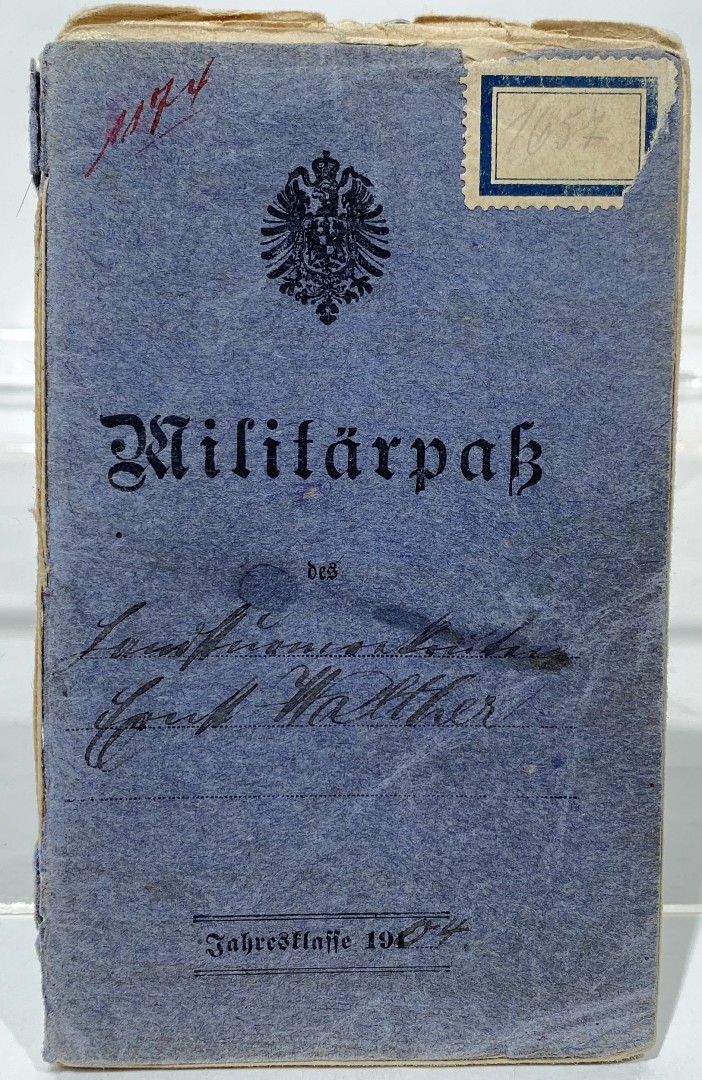 1174
1657
Militärpaß
des
Landsturmrekruten
Ernst Walther
Jahresklasse 1904